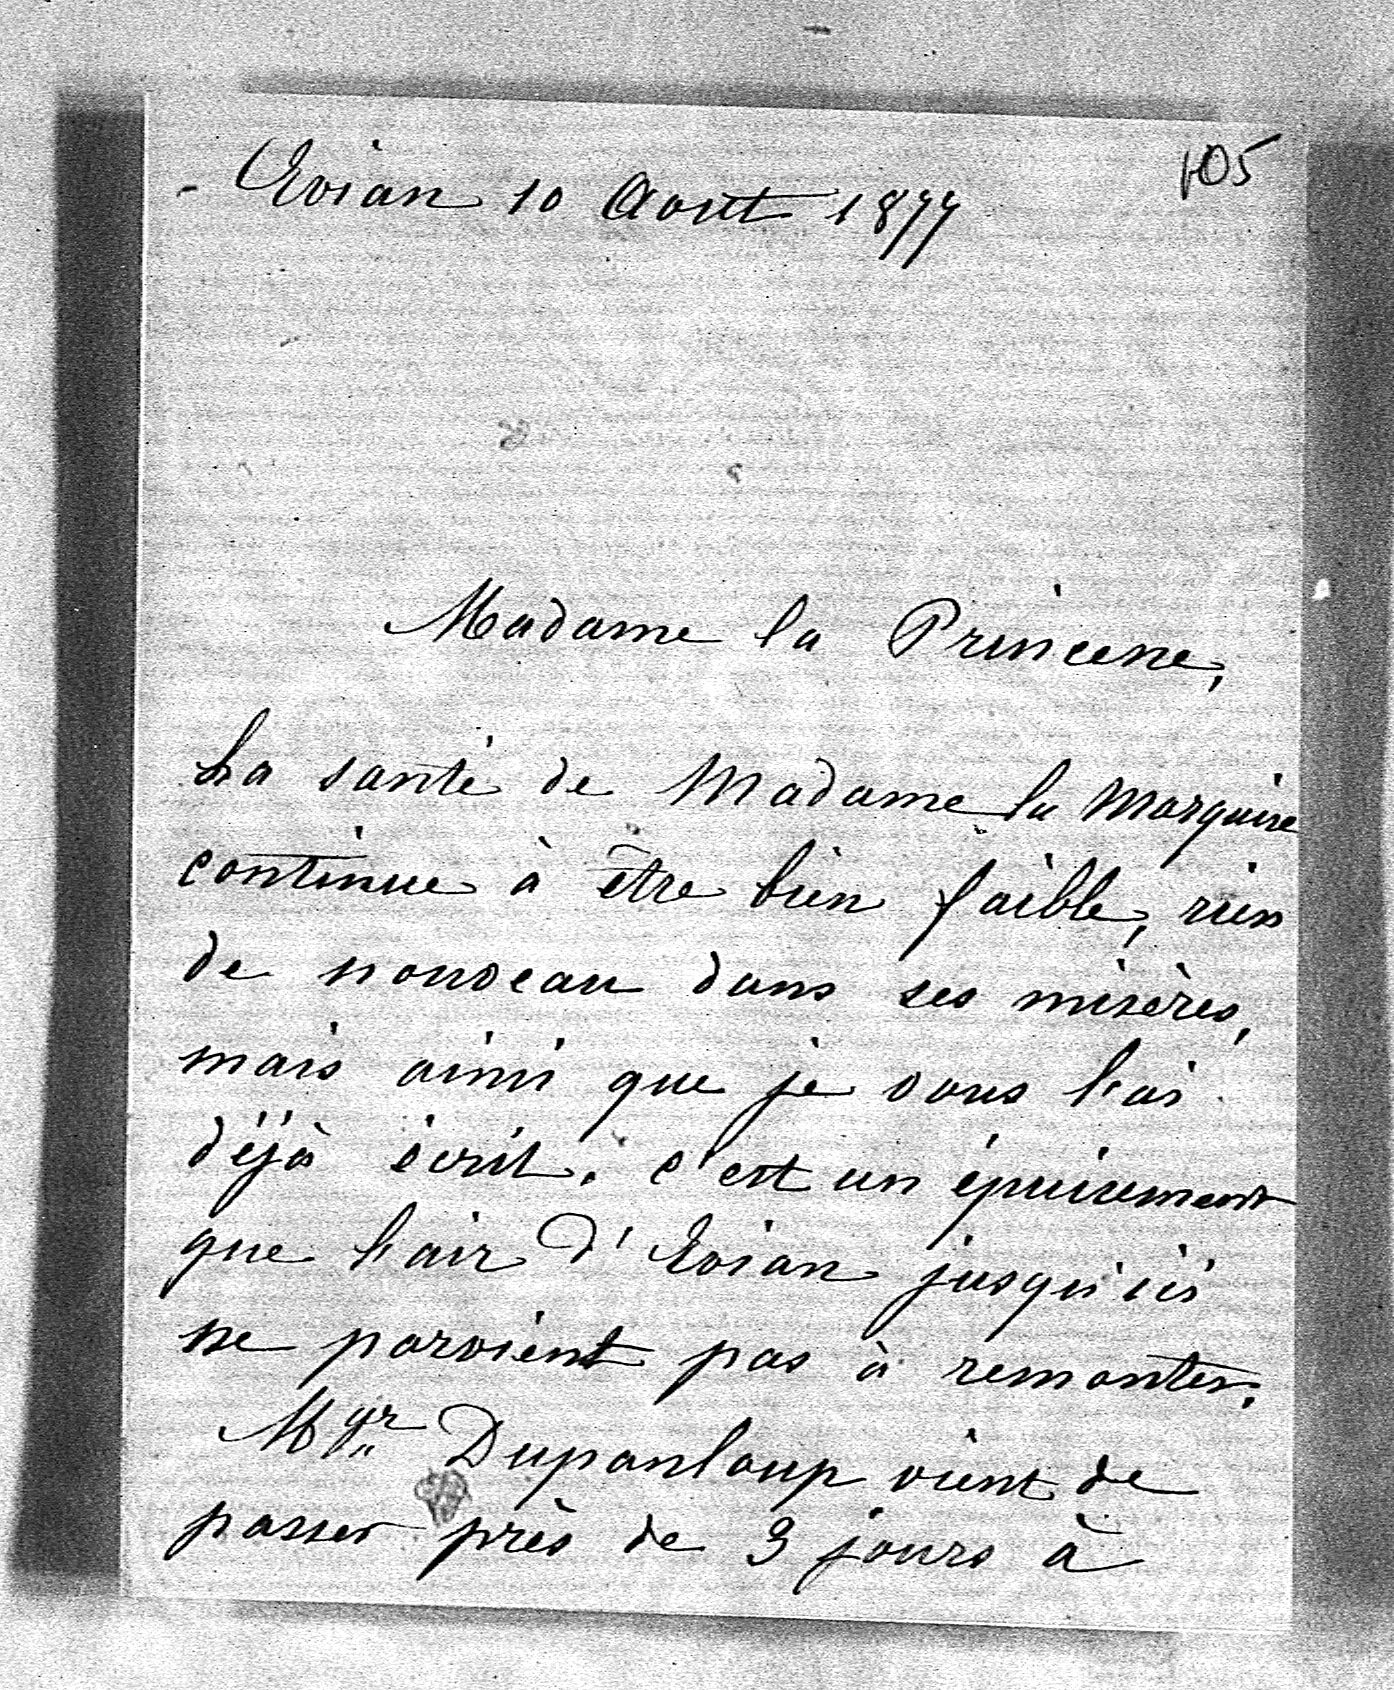 105
Evian 10 Aout 1877
Madame la Princesse,
La santé de Madame la Marquise
continue à être bien faible, rien
de nouveau dans ses misères,
mais ainsi que je vous l'ai
déjà écrit. c'est un épuisement
que l'air d'Evian jusqu'ici
ne parvient pas à remonter.
Mgr Dupanloup vient de
passer près de 3 jours à